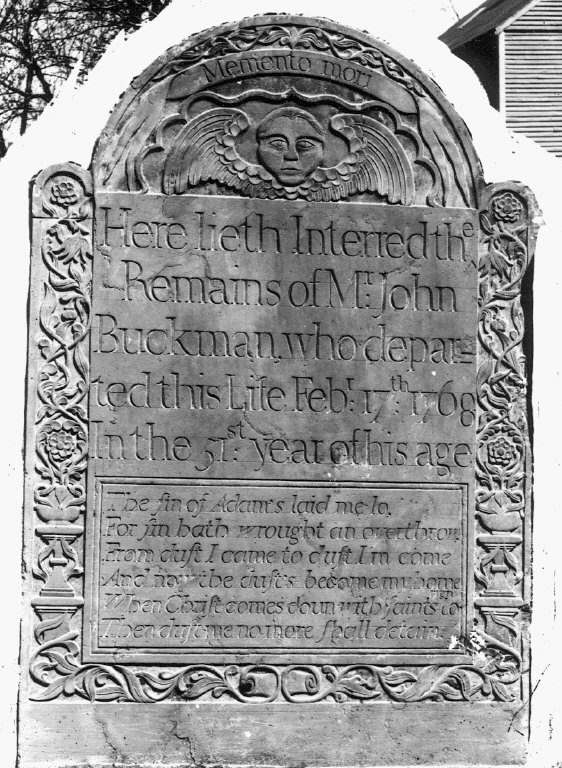 Memento mori
Here lieth Interred the
Remains of Mr. John
Buckman, who depar=
ted this Life Febr. 17th. 1768
In the 51st. year of his age
The ſin of Adam's laid me lo,
For ſin hath wrought an overthrow.
From duſt I came to duſt I'm come
And now the duſt's become my home
When Chriſt comes down with ſaints to
Then duſt me no more ſhall detain.